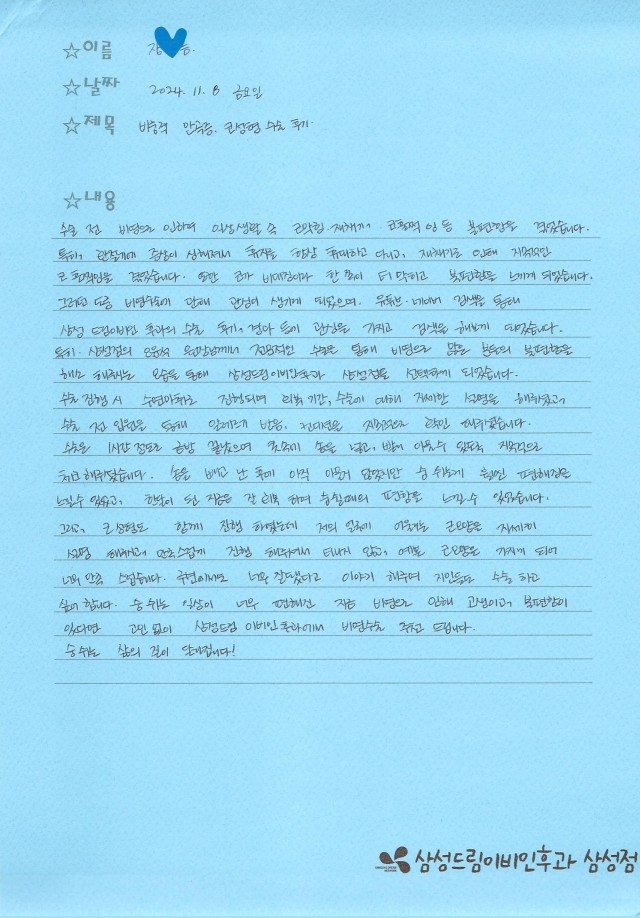 ☆이름
☆날짜 2024. 11. 8 금요일
☆제목 비중격 만곡증, 코성형 수술 후기
☆내용
수술 전 비염으로 인하여 일상생활 속 코막힘·재채기 등 불편함을 겪었습니다.
특히, 환절기에 증상이 심해져서 휴지를 항상 휴대하고 다니고, 재채기로 인해 지속적인
겪었습니다. 또한 코가 비대칭이라 한 쪽이 더 막히고 불편함을 느끼게 되었습니다.
그러던 도중 비염수술에 관해 관심이 생기게 되었으며, 유튜브·네이버 검색을 통해
삼성드림이비인후과의 수술 후기, 결과 등에 관심을 가지고 검색을 해보게 되었습니다.
특히 삼성점의 원장님께서 전문적인 수술을 통해 비염으로 많은 분들의 불편함을
해소 해주시는 모습을 통해 삼성드림이비인후과 삼성점을 선택하게 되었습니다.
수술 진행 시 수면마취로 진행되며 회복 기간, 수술에 대해 자세한 설명을 해주셨고,
수술 전 검사를 통해 알레르기 반응, 전체적으로 확인 해주셨습니다.
수술은 1시간 정도로 금방 끝났으며 콧속에 솜을 넣고, 밤에 아물 수 있도록 지속적으로
치료해주셨습니다. 솜을 빼고 난 후에 아직 아물지 않았지만 숨 쉬는게 훨씬 편해짐을
느낄 수 있었고, 한달이 된 지금은 잘 회복 하여 숨쉴때의 편함을 느낄 수 있었습니다.
그리고, 코성형도 함께 진행 하였는데 저의 얼굴에 어울리는 코모양을 자세히
설명 해주시고, 만족스럽게 진행 해주셔서 티나지 않고, 예쁜 코모양을 가지게 되어
너무 만족 스럽습니다. 주변에서도 너무 잘됐다고 이야기 해주며 지인들도 수술 하고
싶어 합니다. 숨 쉬는 일상이 너무 편해진 지금 비염으로 인해 고생이고, 불편함이
있다면 고민 없이 삼성드림 이비인후과에서 비염수술 추천 드립니다.
숨 쉬는 삶의 질이 달라집니다!
삼성드림이비인후과 삼성점